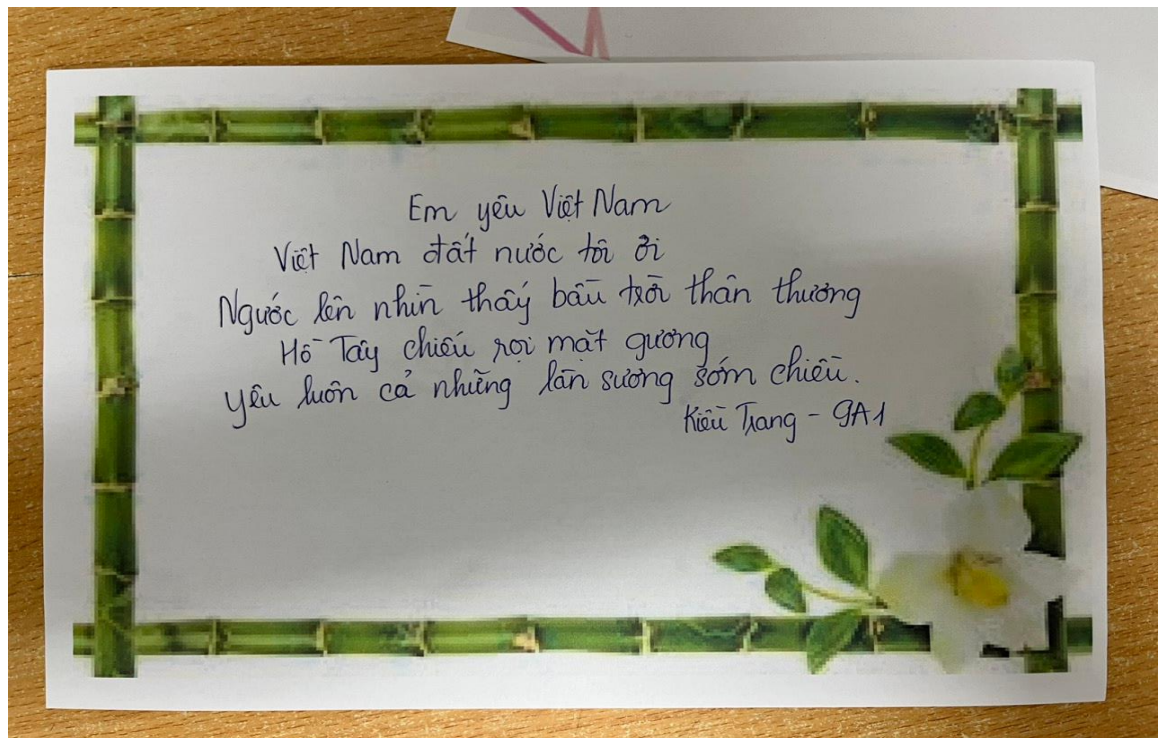 Em yêu Việt Nam
Việt Nam đất nước tôi ơi
Ngước lên nhìn thấy bầu trời thân thương
Hồ Tây chiếu rọi mặt gương
Yêu luôn cả những làn sương sớm chiều.
Kiều Trang - 9A1